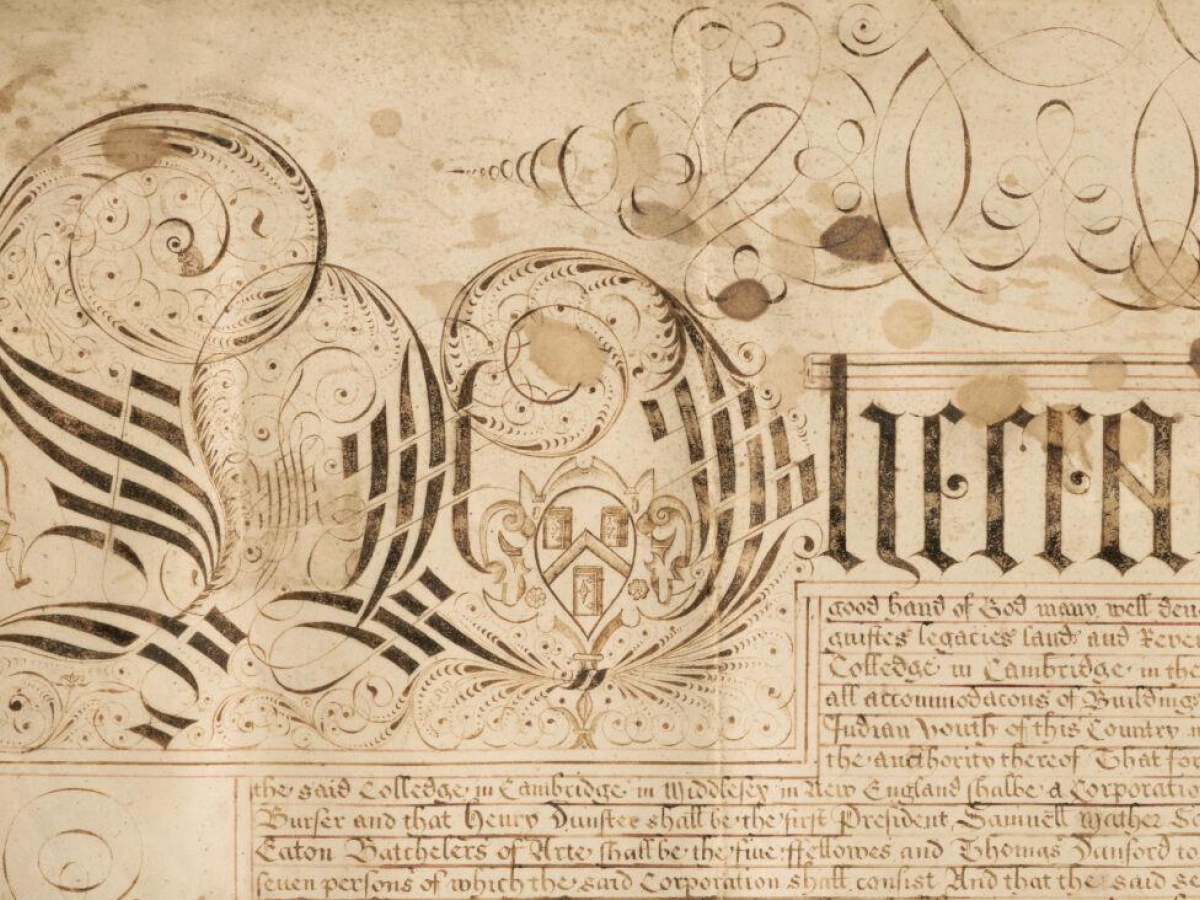 Wherea
good hand of God many well devo
guiftes legacies lands and Reve
Colledge in Cambridge in the
all accommodacons of Building
Indian youth of this Country in
the aucthority thereof That for
the said Colledge in Cambridge in Middlesex in New England shalbe a Corporatio
Burser and that Henry Dunster shall be the first President, Samuell Mather Sa
Eaton Batchelers of Arte shall be the five ffellowes and Thomas Danford to
seven persons of which the said Corporation shall consist And that the said se